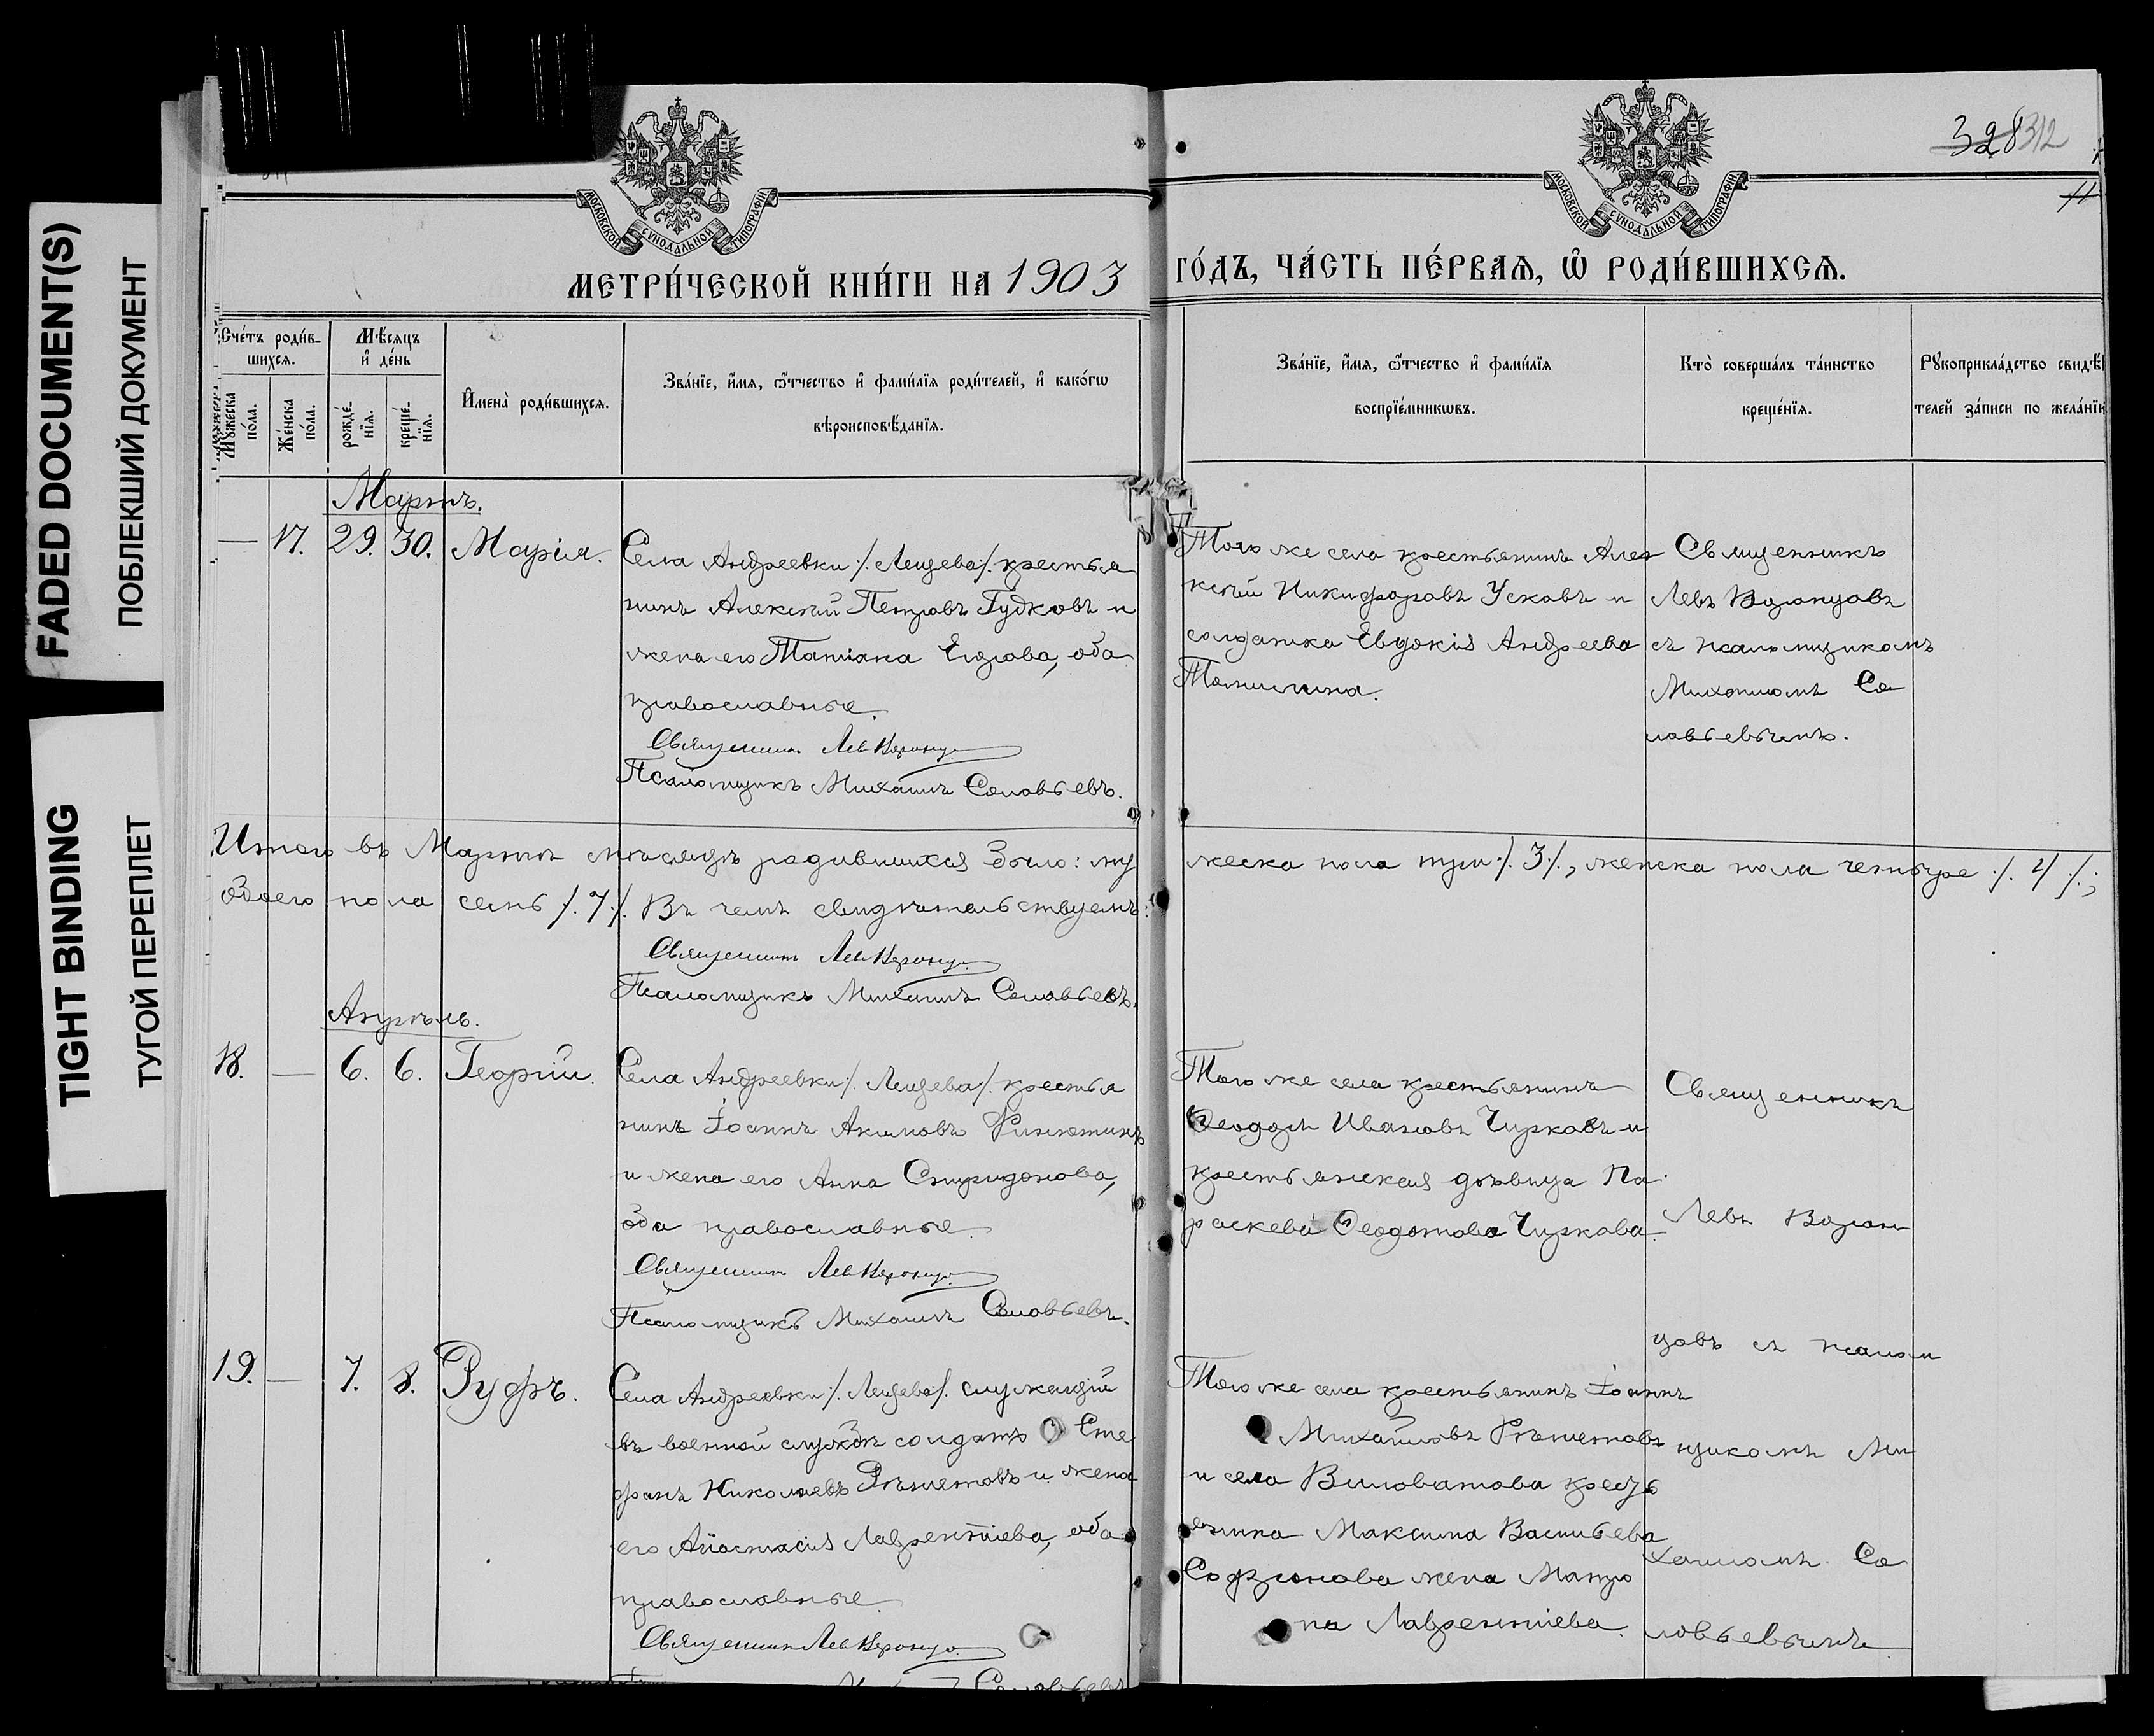 FADED DOCUMENT(S)
ПОБЛЕКШИЙ ДОКУМЕНТ
TIGHT BINDING
ТУГОЙ ПЕРЕПЛЕТ
МОСКОВСКОЙ СѴНОДАЛЬНОЙ ТИПОГРАФІИ
МОСКОВСКОЙ СѴНОДАЛЬНОЙ ТИПОГРАФІИ
328 312
11
МЕТРИ́ЧЕСКОЙ КНИ́ГИ НА 1903 ГО́ДЪ, ЧА́СТЬ ПЕ́РВАѦ, Ѽ РОДИ́ВШИХСѦ.
Сче́тъ роди́в-
шихсѧ.
Мꙋ́жеска
по́ла.
Же́нска
по́ла.
Мѣ́сѧцъ
и҆ де́нь
рожде́-
нїѧ.
креще́-
нїѧ.
И҆мена̀ роди́вшихсѧ.
Зва́нїе, и҆́мѧ, ѻ҆́тчество и҆ фами́лїѧ роди́телей, и҆ како́гѡ
вѣроисповѣ́данїѧ.
Зва́нїе, и҆́мѧ, ѻ҆́тчество и҆ фами́лїѧ
воспрїе́мникѡвъ.
Кто̀ соверша́лъ та́инство
креще́нїѧ.
Рꙋкоприкла́дство свидѣ́-
телей за́писи по жела́нїю
Мартъ.
— 17. 29. 30. Марія.
Села Андреевки /. Лещева /. крестья
нинъ Алексѣй Петровъ Гудковъ и
жена его Татіана Егорова, оба
православные.
Священникъ Лев
Псаломщикъ Михаилъ Соловьевъ.
Того же села крестьянинъ Алек
сѣй Никифоровъ Усковъ и
солдатка Евдокія Андреева
Священникъ
Левъ
съ псаломщикомъ
Михаиломъ Со
ловьевымъ.
Итого въ Мартѣ мѣсяцѣ родившихся было: му
жеска пола три /. 3 /., женска пола четыре /. 4 /.;
обоего пола семь /. 7 /. Въ чемъ свидѣтельствуемъ:
Священникъ Лев
Псаломщикъ Михаилъ Соловьевъ.
Апрѣль.
18. — 6. 6. Георгій.
Села Андреевки /. Лещева /. крестья
нинъ Іоаннъ Акимовъ
и жена его Анна Спиридонова,
оба православные.
Священникъ Лев
Псаломщикъ Михаилъ Соловьевъ.
Того же села крестьянинъ
Ѳеодотъ Ивановъ Чирковъ и
крестьянская дѣвица Па
раскева Ѳеодотова Чиркова.
Священникъ
Левъ
цовъ съ псалом
щикомъ Ми
хаиломъ Со
ловьевымъ
19. — 7. 8. Руфъ.
Села Андреевки /. Лещева /. служащій
въ военной службѣ солдатъ Сте
фанъ Николаевъ Рѣшетовъ и жена
его Анастасія Лаврентіева, оба
православные.
Священникъ Лев
Соловьевъ
Того же села крестьянинъ Іоаннъ
Михайловъ Рѣшетовъ
и села Виловатова кресть
янина Максима Васильева
жена Матро
на Лаврентіева.